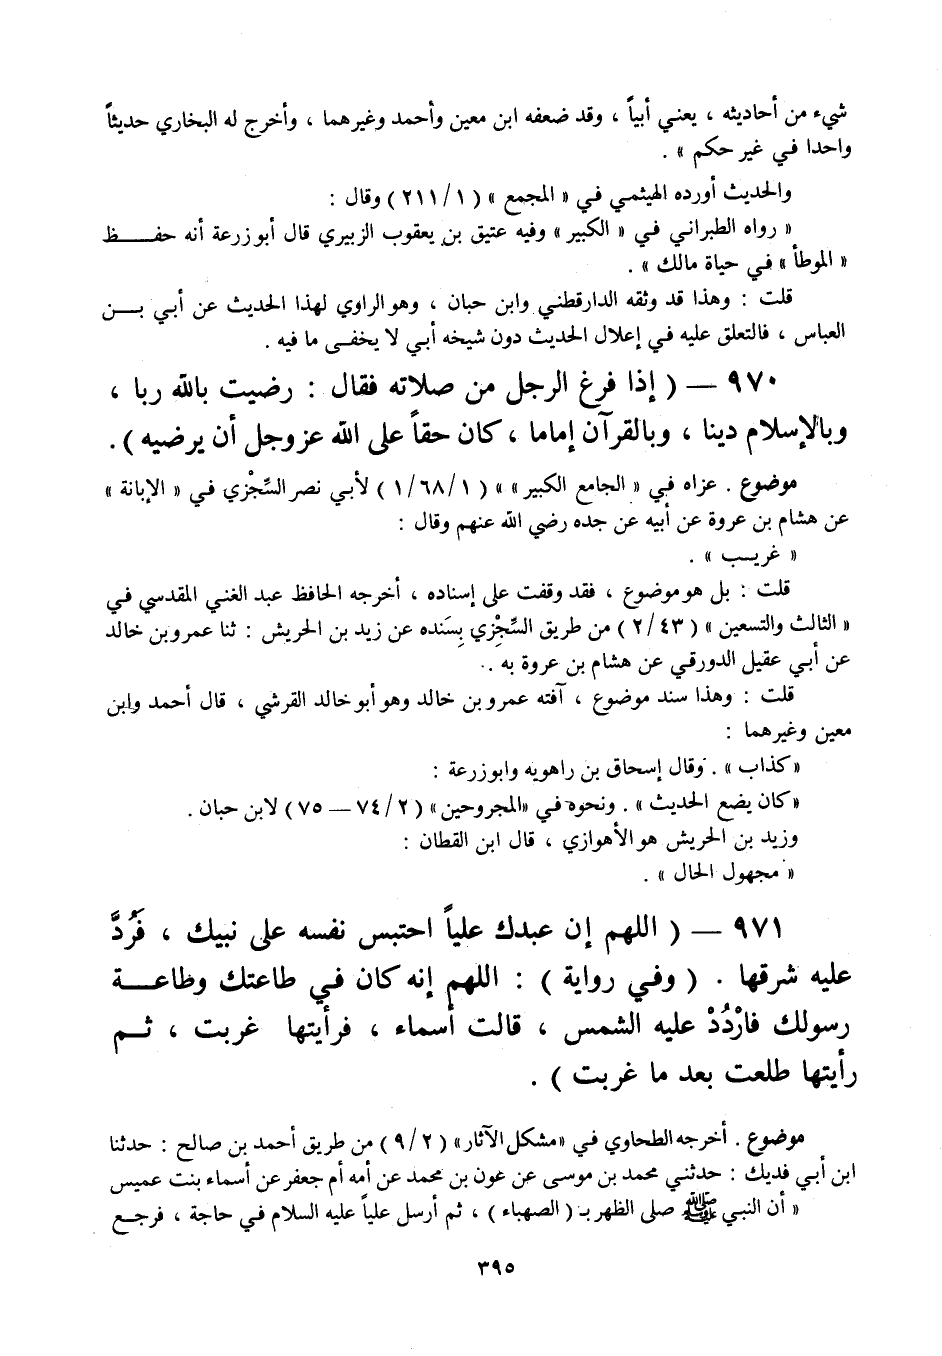 شيء من أحاديثه ، يعني أبياً ، وقد ضعفه ابن معين وأحمد وغيرهما ، وأخرج له البخاري حديثاً
واحدا في غير حكم » .
والحديث أورده الهيثمي في « المجمع » ( ١/ ٢١١ ) وقال :
« رواه الطبراني في « الكبير » وفيه عتيق بن يعقوب الزبيري قال أبو زرعة أنه حفــــظ
« الموطأ » في حياة مالك » .
قلت : وهذا قد وثقه الدارقطني وابن حبان ، وهو الراوي لهذا الحديث عن أبي بـــن
العباس ، فالتعلق عليه في إعلال الحديث دون شيخه أبي لا يخفى ما فيه .
٩٧٠ — ( إذا فرغ الرجل من صلاته فقال : رضيت بالله ربا ،
وبالإسلام دينا ، وبالقرآن إماما ، كان حقاً على الله عز وجل أن يرضيه ) .
موضوع . عزاه في « الجامع الكبير » » ( ١/ ٦٨/ ١ ) لأبي نصر السِّجْزي في « الإبانة »
عن هشام بن عروة عن أبيه عن جده رضي الله عنهم وقال :
« غريب » .
قلت : بل هو موضوع ، فقد وقفت على إسناده ، أخرجه الحافظ عبد الغني المقدسي في
« الثالث والتسعين » ( ٤٣/ ٢ ) من طريق السِّجْزي بِسَنده عن زيد بن الحريش : ثنا عمرو بن خالد
عن أبي عقيل الدورقي عن هشام بن عروة به .
قلت : وهذا سند موضوع ، آفته عمرو بن خالد وهو أبو خالد القرشي ، قال أحمد وابن
معين وغيرهما :
«كذاب » . وقال إسحاق بن راهويه وابو زرعة :
«كان يضع الحديث » . ونحوه في «المجروحين» ( ٢/ ٧٤ — ٧٥ ) لابن حبان .
وزيد بن الحريش هو الأهوازي ، قال ابن القطان :
« مجهول الحال » .
٩٧١ — ( اللهم إن عبدك علياً احتبس نفسه على نبيك ، فَرُدَّ
عليه شرقها . ( وفي رواية ) : اللهم إنه كان في طاعتك وطاعـــة
رسولك فارْدُدْ عليه الشمس ، قالت أسماء ، فرأيتها غربت ، ثــم
رأيتها طلعت بعد ما غربت ) .
موضوع . أخرجه الطحاوي في «مشكل الآثار» ( ٢/ ٩ ) من طريق أحمد بن صالح : حدثنا
ابن أبي فديك : حدثني محمد بن موسى عن عون بن محمد عن أمه أم جعفر عن أسماء بنت عميس
« أن النبي ﷺ صلى الظهر بـ ( الصهباء ) ، ثم أرسل علياً عليه السلام في حاجة ، فرجـع
٣٩٥